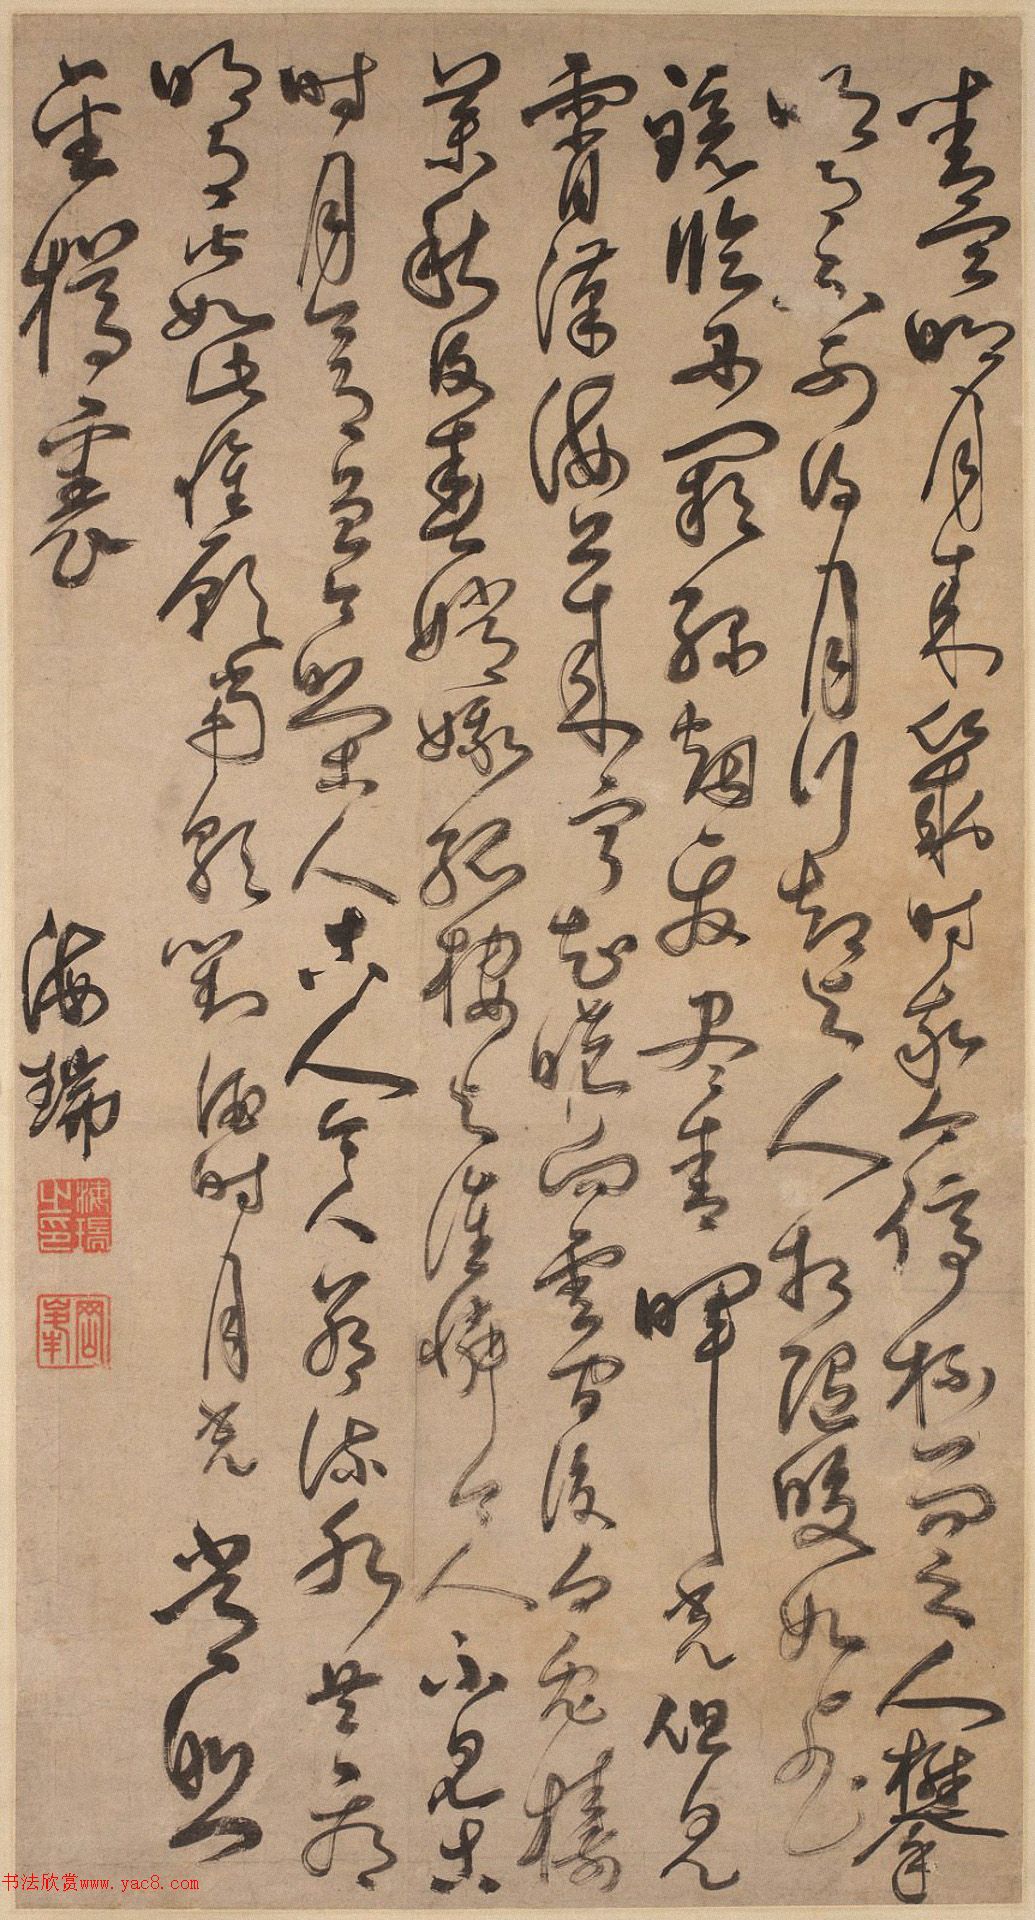 青空明月来幾时我今停杯一问之人攀
明月不可得月行却与人相随皎如飞
镜临丹阙绿烟灭尽青晖光但见
霄从海上来宁知晓向云间没白兔捣
药秋复春嫦娥孤棲与谁怜今人不见古
时月今月曾今照古人古人今人若流水共看
明月皆如此惟愿当歌對酒时月光常照
金樽裏
海瑞
海瑞之印
书法欣赏www.yac8.com